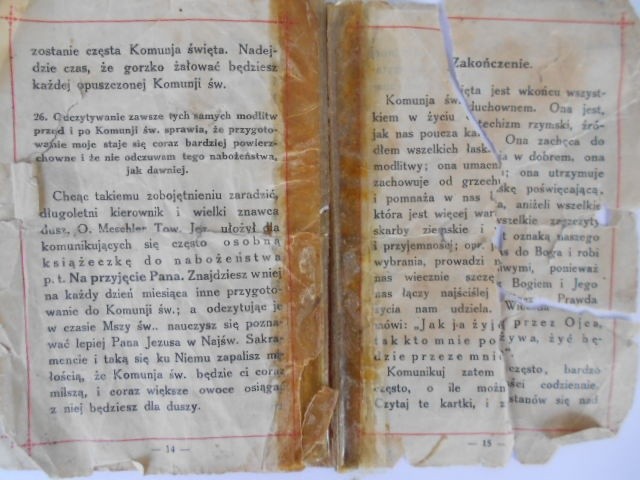 zostanie częsta Komunja święta. Nadej-
dzie czas, że gorzko żałować będziesz
każdej opuszczonej Komunji św.
26. Odczytywanie zawsze tych samych modlitw
przed i po Komunji św. sprawia, że przygoto-
wanie moje staje się coraz bardziej powierz-
chowne i że nie odczuwam tego nabożeństwa,
jak dawniej.
Chcąc takiemu zobojętnieniu zaradzić,
długoletni kierownik i wielki znawca
dusz, O. Meschler Tow. Jez. ułożył dla
komunikujących się często osobną
książeczkę do nabożeństwa
p. t. Na przyjęcie Pana. Znajdziesz w niej
na każdy dzień miesiąca inne przygoto-
wanie do Komunji św.; a odczytując je
w czasie Mszy św.. nauczysz się pozna-
wać lepiej Pana Jezusa w Najśw. Sakra-
mencie i taką się ku Niemu zapalisz mi-
łością, że Komunja św. będzie ci coraz
milszą, i coraz większe owoce osiąga
z niej będziesz dla duszy.
— 14 —
Zakończenie.
Komunja św. ięta jest wkońcu wszyst-
kiem w życiu duchownem. Ona jest,
jak nas poucza ka techizm rzymski, źró-
dłem wszelkich łask Ona zachęca do
modlitwy; ona umacn a w dobrem, ona
zachowuje od grzechu ; ona utrzymuje
i pomnaża w nas skę poświęcającą,
która jest więcej war a, aniżeli wszelkie
skarby ziemskie i wszelkie zaszczyty
i przyjemności; opr t oznaką naszego
wybrania, prowadzi n as do Boga i robi
nas wiecznie szczę wymi, ponieważ
nas łączy najściślej Bogiem i Jego
życia nam udziela. Prawda
mówi: „Jak ja żyję przez Ojca,
tak kto mnie pożywa, żyć bę-
dzie przeze mnie“.
Komunikuj zatem często, bardzo
często, o ile możn ości codziennie.
Czytaj te kartki, i z stanów się nad
— 15 —